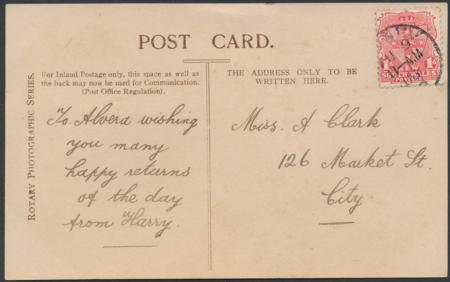 POST CARD.
ROTARY PHOTOGRAPHIC SERIES.
For Inland Postage only, this space as well as
the back may now be used for Communication.
(Post Office Regulation).
THE ADDRESS ONLY TO BE
WRITTEN HERE.
To Alvera wishing
you many
happy returns
of the day
from Harry.
Miss. A Clark
126 Market St.
City.